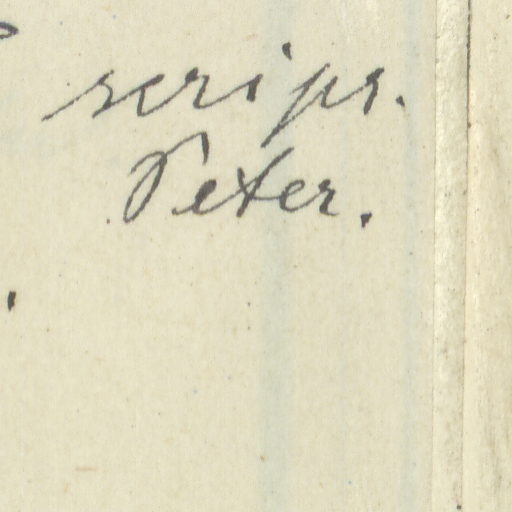 scrips.
Peter.